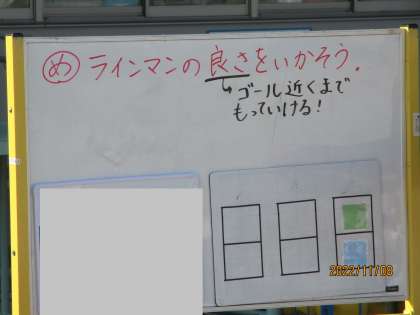 め ラインマンの良さをいかそう.
ゴール近くまで
もっていける!
2022/11/08